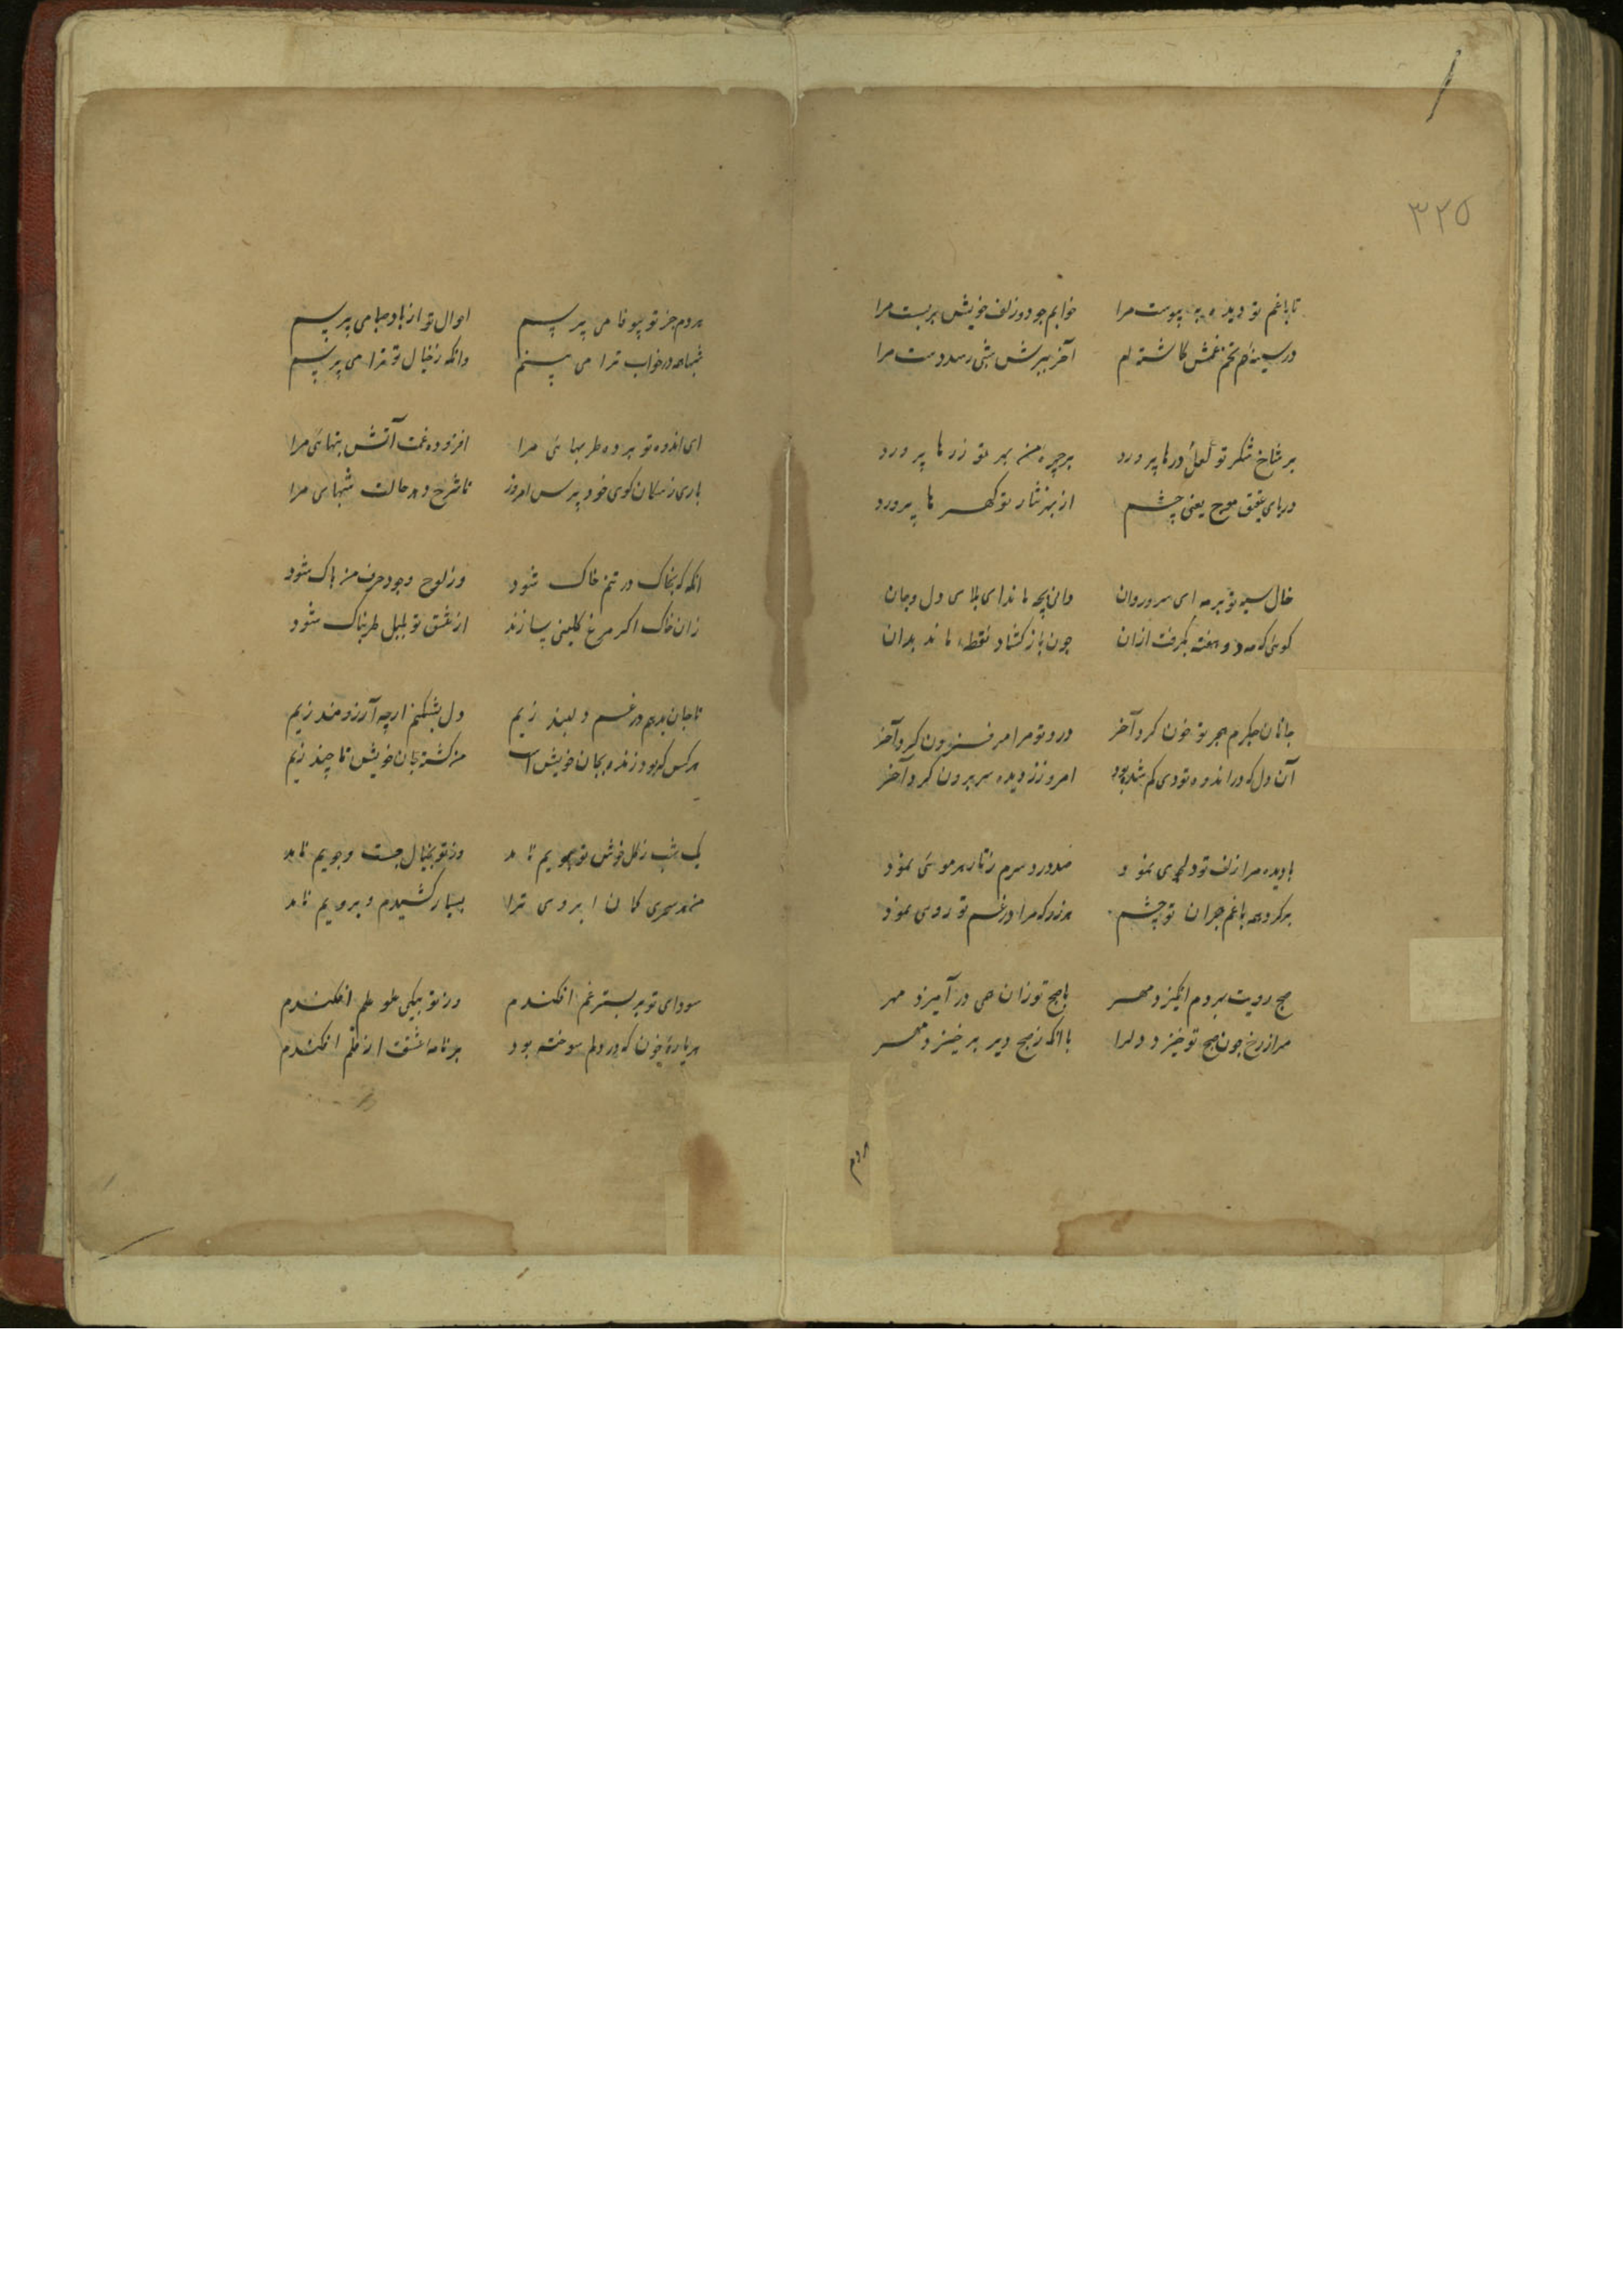 ۳۲۵
تا با غم تو دیده پیوست مرا خوابم چو دو زلف خویش بربست مرا
در سینه‌ام تخم غمش کاشته‌ام آخر ببرش شبی رسد دست مرا
بر شاخ شکر تو لعل درها پرورد بر چهره من بهر تو زرها پرورد
دریای عقیق موج یعنی چشمم از بهر نثار تو کهرها پرورد
خال سیه تو بر مه ای سرو روان دانی بچه ماند ای بلای دل و جان
کوئی که مه دو هفته بگرفت از آن چون باز کشاد نقطه ماند بدان
جانان جکرم هجر تو خون کرد آخر درد تو مرا فزون کرد آخر
آن دل که در اندوه تو دی کم شده بود امروز ز دیده سر برون کرد آخر
با دیده مرا زلف تو دلجوی نمود صد درد سرم ز تار هر موئی نمود
بر کرد همه با غم هجران تو چشم هر درد که مرا در غم تو روی نمود
صبح رویت بر دم انکیزد مهر با صبح تو زان همی در آمیزد مهر
مرا ز رخ چون صبح تو خیزد دلرا با آنکه ز صبح دیر برخیزد مهر
هر دم
هر دم خبر تو بیوفا می پرسم احوال تو از باد صبا می پرسم
شبها همه در خواب ترا می بینم وانکه ز خیال تو ترا می پرسم
ای اندوه تو برده طربهای مرا افزوده غمت آتش تبهای مرا
باری ز سکان کوی خود پرس امروز تا شرح دهد حالت شبهای مرا
آنکه که بخاک در تنم خاک شود وز لوح وجود حرف من پاک شود
زان خاک اکر مرغ کلینی سازند از عشق تو بلبل طربناک شود
تا جان بدهم در غم دلبند زیم دل بشکنم ارچه آرزومند زیم
هر کس که بود زنده بجان خویش است من کشته بجان خویش تا چند زیم
یک شب ز کل خوش تو بویم نامد وز تو بخیال جست و جویم نامد
من هر سحری کمان ابروی ترا بسیار کشیدم و برویم نامد
سودای تو بر بستر غم افکندم وز تو بیکی طو علم افکندم
هر پاره خون که در دلم سوخته بود بر نامه عشقت از قلم افکندم